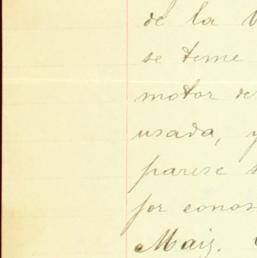 de la
se teme
motor de
usada, y
parese
por conos
Maiz.